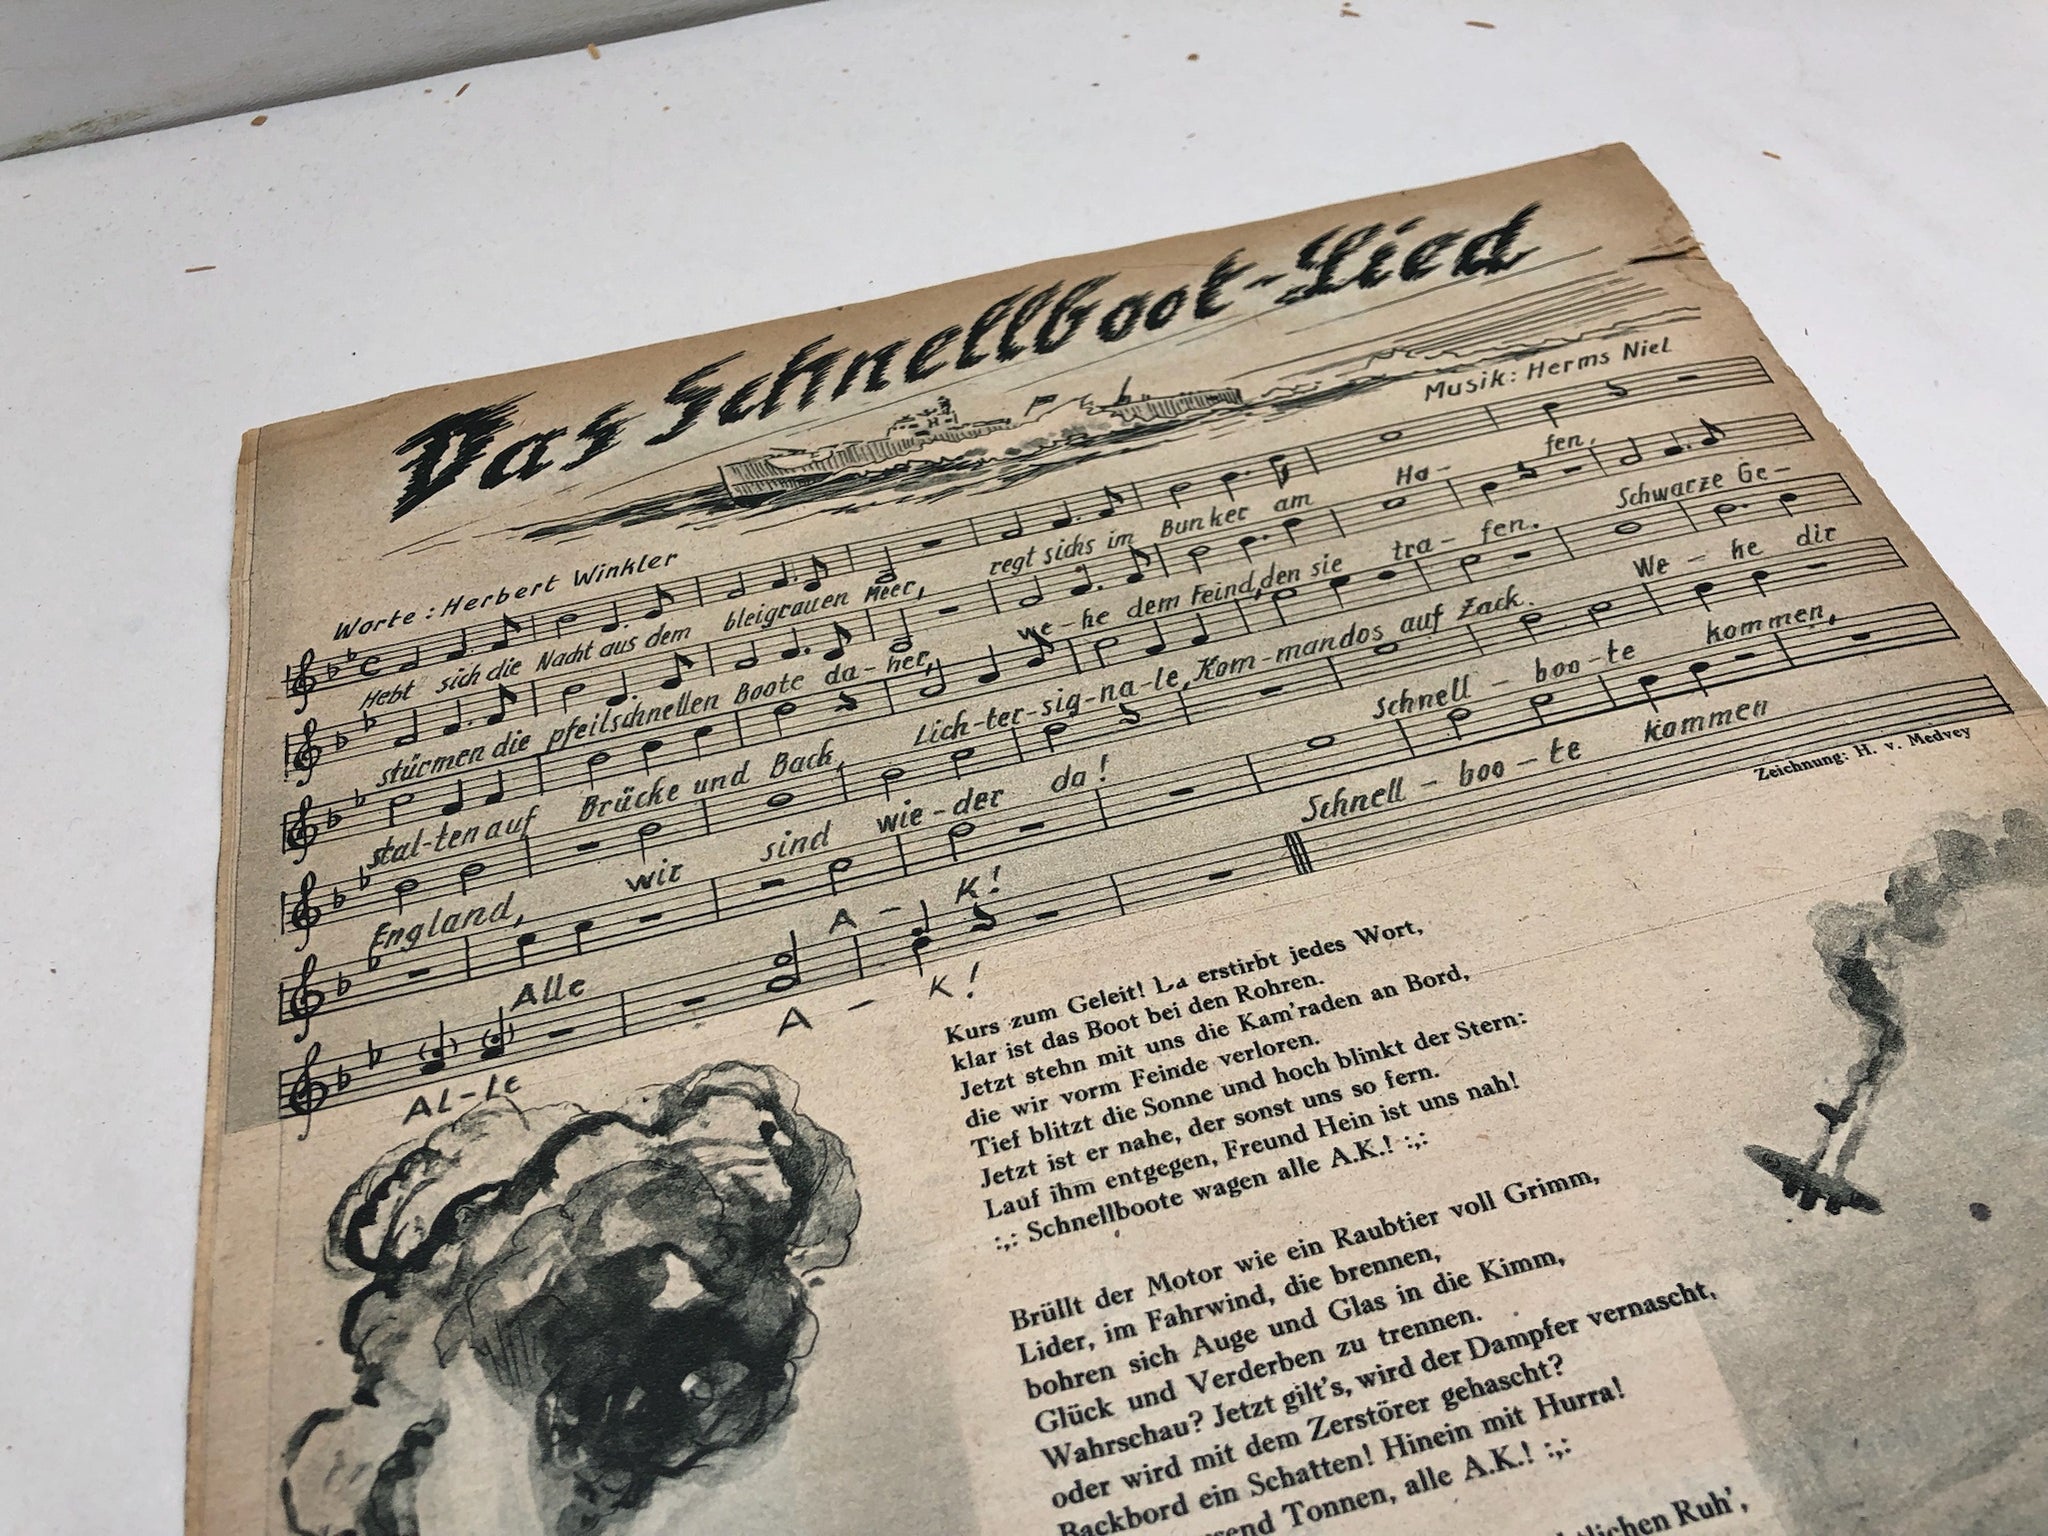 Das Schnellboot-Lied
Worte: Herbert Winkler
Musik: Herms Niel
Hebt sich die Nacht aus dem bleigrauen Meer, regt sichs im Bunker am Ha- fen,
stürmen die pfeilschnellen Boote da-her, we-he dem Feind, den sie tra- fen. Schwarze Ge-
stal-ten auf Brücke und Back, Lich-ter-sig-na-le, Kom-mandos auf Zack. We-he dir
England, wir sind wie-der da! Schnell-boo-te kommen,
Alle A-K! Schnell-boo-te kommen
AL-LE A-K!
Zeichnung: H. v. Medvey
Kurs zum Geleit! Da erstirbt jedes Wort,
klar ist das Boot bei den Rohren.
Jetzt stehn mit uns die Kam'raden an Bord,
die wir vorm Feinde verloren.
Tief blitzt die Sonne und hoch blinkt der Stern:
Jetzt ist er nahe, der sonst uns so fern.
Lauf ihm entgegen, Freund Hein ist uns nah!
:,: Schnellboote wagen alle A.K.! :,:
Brüllt der Motor wie ein Raubtier voll Grimm,
Lider, im Fahrwind, die brennen,
bohren sich Auge und Glas in die Kimm,
Glück und Verderben zu trennen.
Wahrschau? Jetzt gilt's, wird der Dampfer vernascht,
oder wird mit dem Zerstörer gehascht?
Backbord ein Schatten! Hinein mit Hurra!
Tonnen, alle A.K.! :,:
Ruh',